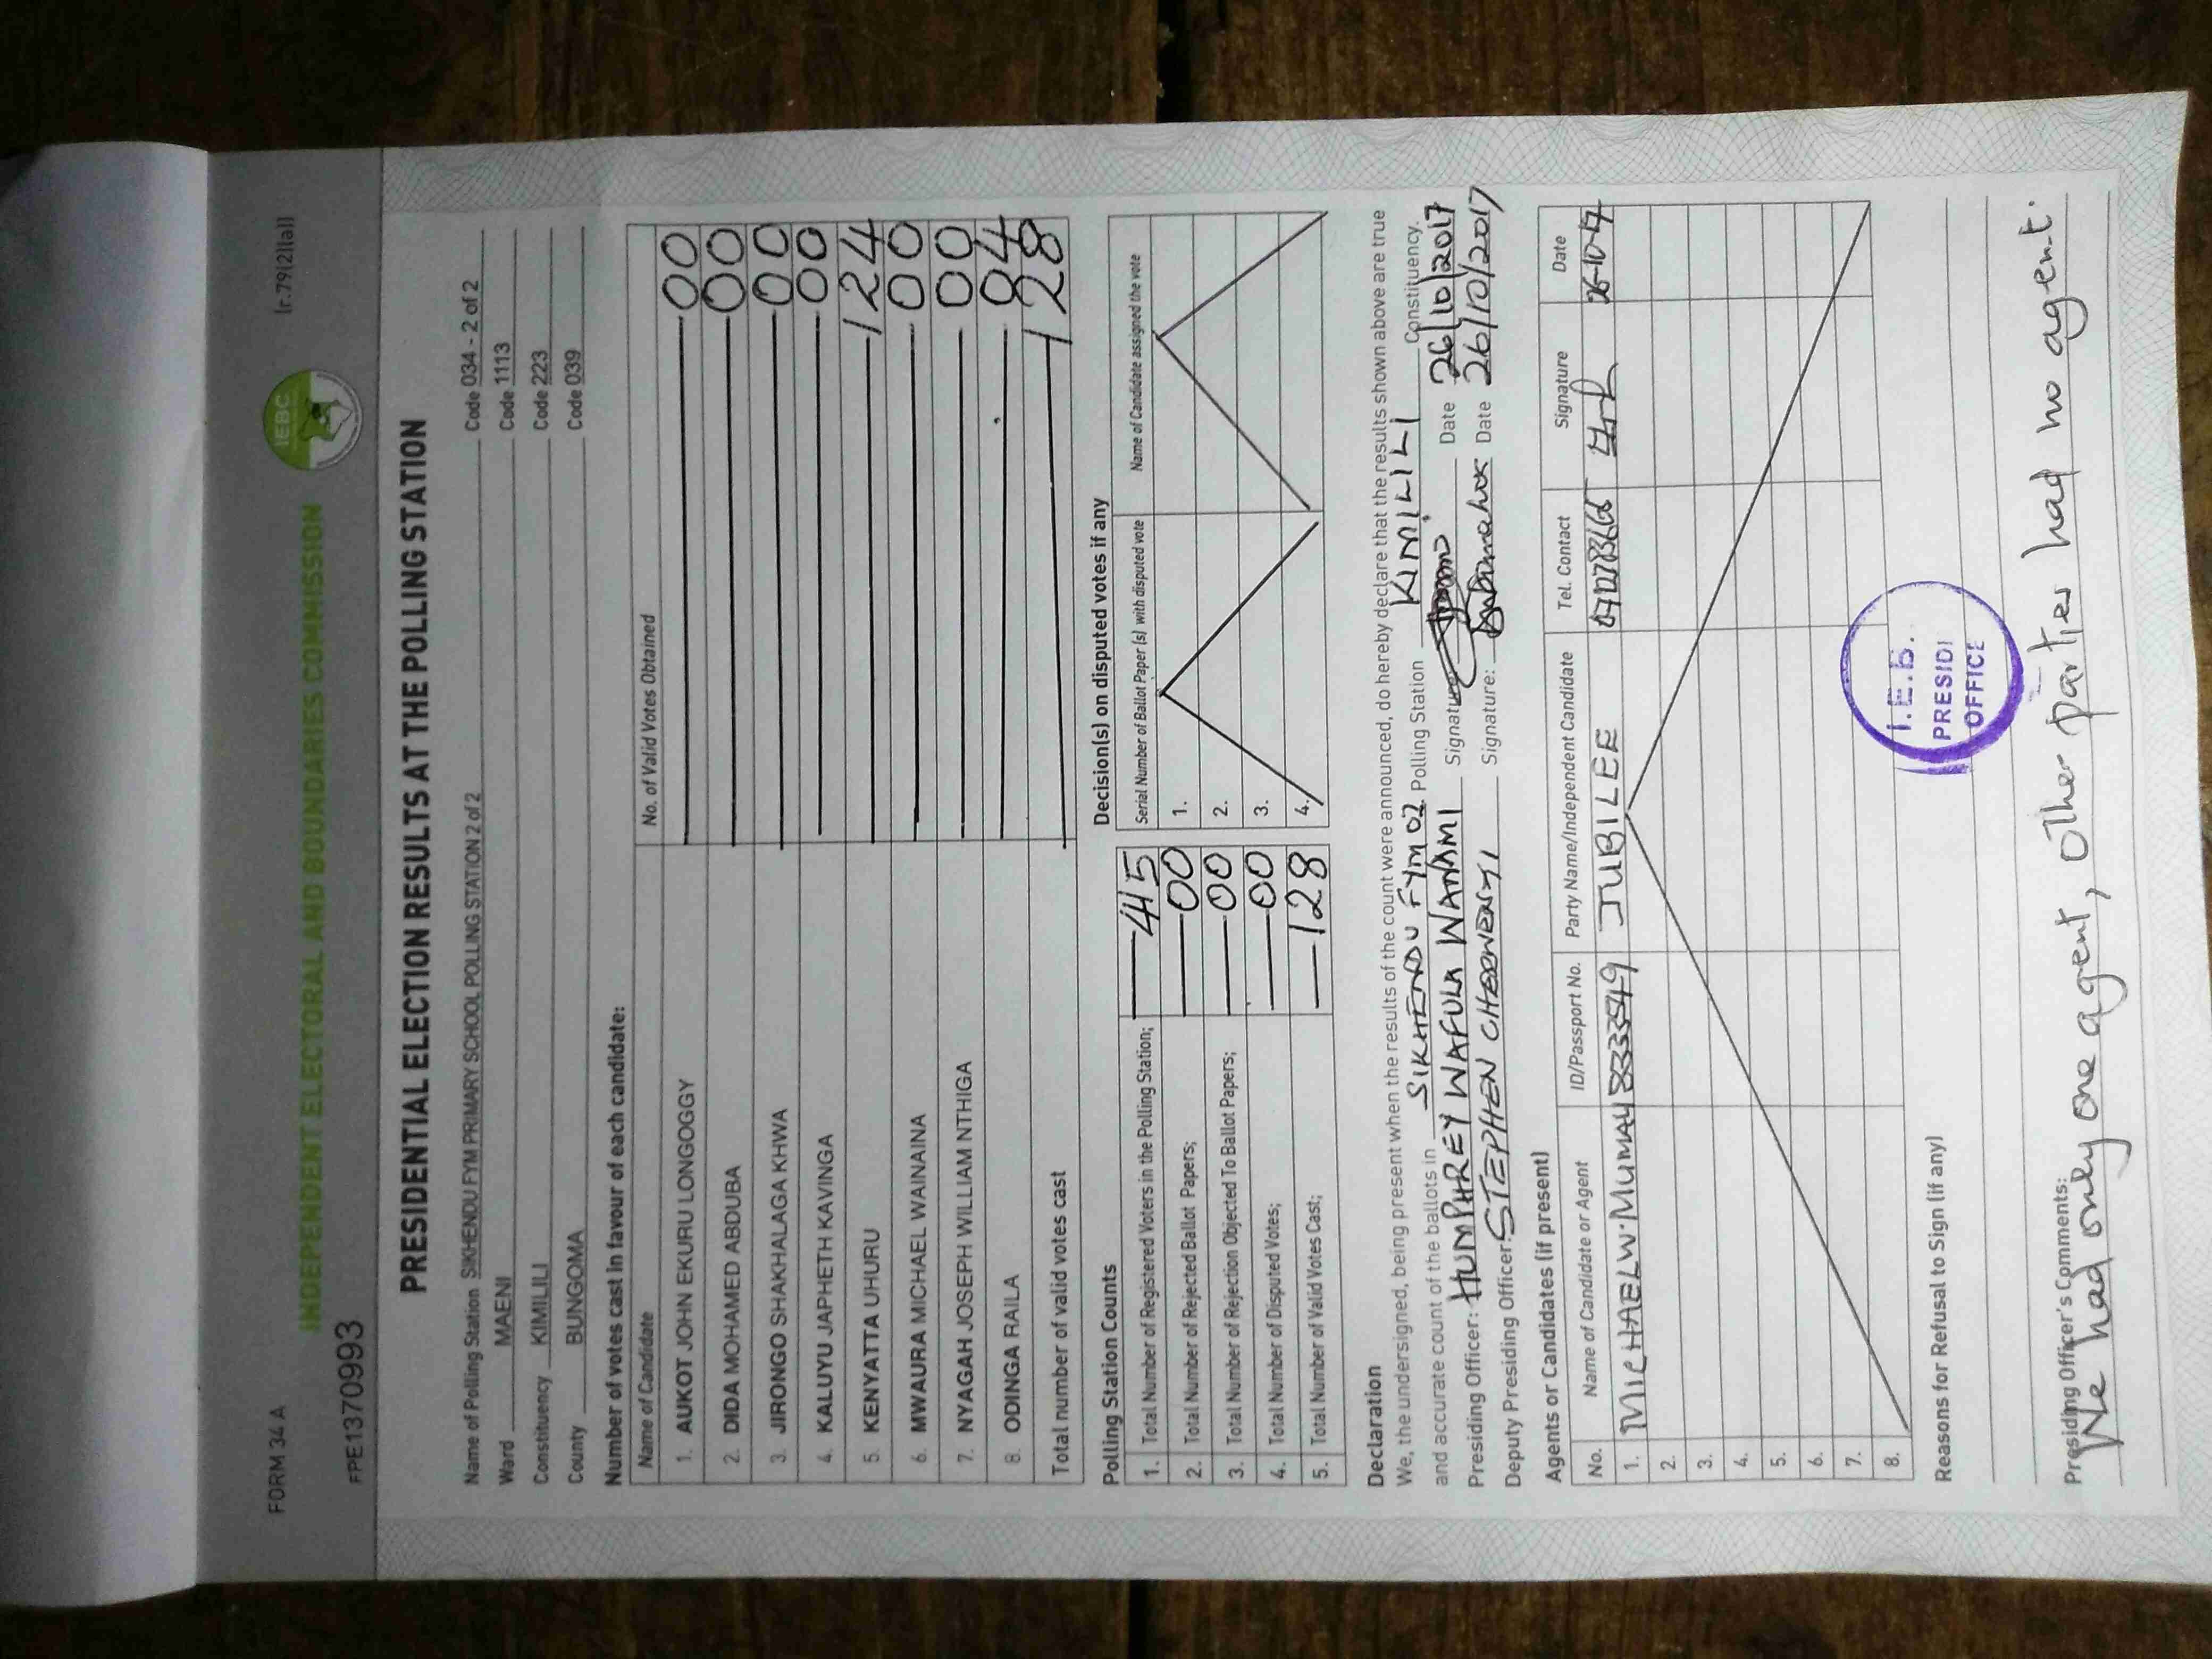 FORM 34 A
(r.79(2)(a))
IEBC
INDEPENDENT ELECTORAL AND BOUNDARIES COMMISSION
FPE1370993
PRESIDENTIAL ELECTION RESULTS AT THE POLLING STATION
Name of Polling Station SIKHENDU FYM PRIMARY SCHOOL POLLING STATION 2 of 2 Code 034 - 2 of 2
Ward MAENI Code 1113
Constituency KIMILILI Code 223
County BUNGOMA Code 039
Number of votes cast in favour of each candidate:
Name of Candidate No. of Valid Votes Obtained
1. AUKOT JOHN EKURU LONGOGGY 00
2. DIDA MOHAMED ABDUBA 00
3. JIRONGO SHAKHALAGA KHWA 00
4. KALUYU JAPHETH KAVINGA 00
5. KENYATTA UHURU 124
6. MWAURA MICHAEL WAINAINA 00
7. NYAGAH JOSEPH WILLIAM NTHIGA 00
8. ODINGA RAILA 04
Total number of valid votes cast 128
Polling Station Counts
1. Total Number of Registered Voters in the Polling Station; 415
2. Total Number of Rejected Ballot Papers; 00
3. Total Number of Rejection Objected To Ballot Papers; 00
4. Total Number of Disputed Votes; 00
5. Total Number of Valid Votes Cast; 128
Decision(s) on disputed votes if any
Serial Number of Ballot Paper (s) with disputed vote Name of Candidate assigned the vote
1.
2.
3.
4.
Declaration
We, the undersigned, being present when the results of the count were announced, do hereby declare that the results shown above are true
and accurate count of the ballots in SIKHENDU FYM 02 Polling Station KIMILILI Constituency.
Presiding Officer: HUMPHREY WAFULA WANAMI Signature: Date 26/10/2017
Deputy Presiding Officer: STEPHEN Signature: Date 26/10/2017
Agents or Candidates (if present)
No. Name of Candidate or Agent ID/Passport No. Party Name/Independent Candidate Tel. Contact Signature Date
1. MICHAEL W. JUBILEE
2.
3.
4.
5.
6.
7.
8.
I.E.B.
PRESIDI
OFFICE
Reasons for Refusal to Sign (if any)
Presiding Officer's Comments:
We had only one agent, Other parties had no agent.